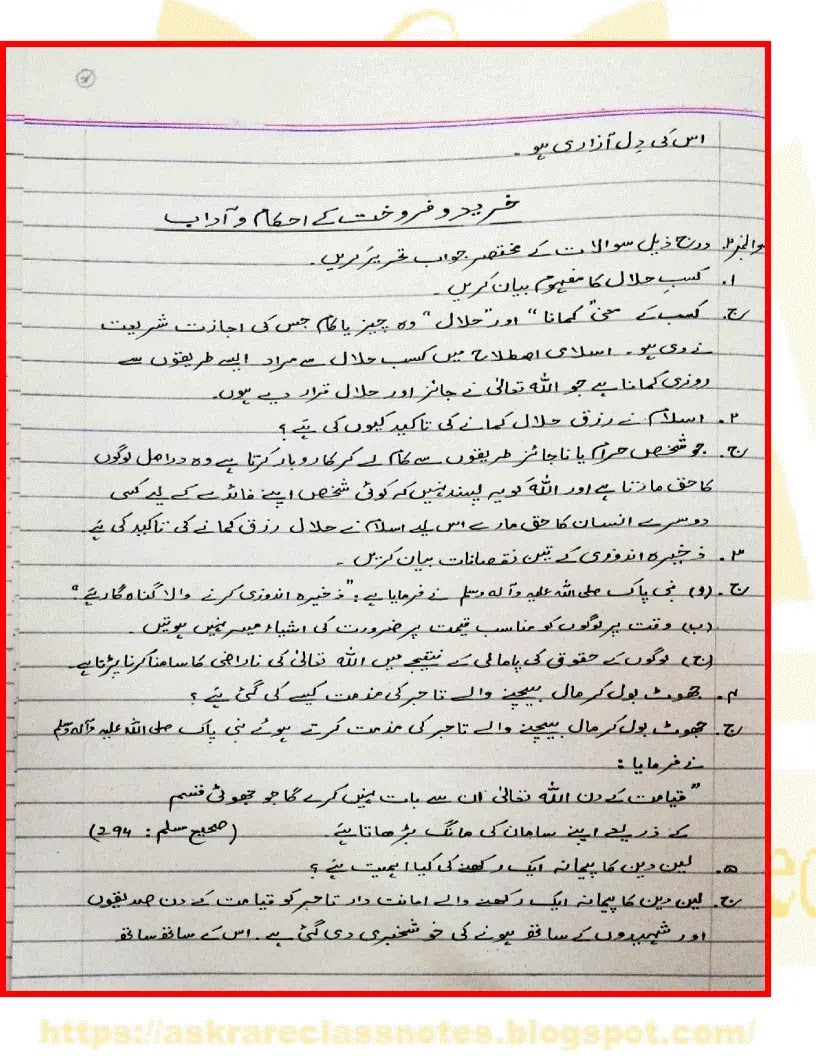 اس کی دِل آزاری ہو ۔
خرید و فروخت کے احکام و آداب
سوالنمبر ۲. درج ذیل سوالات کے مختصر جواب تحریر کریں ۔
۱. کسبِ حلال کا مفہوم بیان کریں ۔
ج. کسب کے معنی "کمانا" اور "حلال" وہ چیز یا کام جس کی اجازت شریعت
نے دی ہو ۔ اسلامی اصطلاح میں کسب حلال سے مراد ایسے طریقوں سے
روزی کمانا ہے جو اللہ تعالیٰ نے جائز اور حلال قرار دیے ہوں۔
۲. اسلام نے رزق حلال کمانے کی تاکید کیوں کی ہے ؟
ج. جو شخص حرام یا ناجائز طریقوں سے کام لے کر کاروبار کرتا ہے وہ دراصل لوگوں
کا حق مارتا ہے اور اللہ کو یہ پسند نہیں کہ کوئی شخص اپنے فائدے کے لیے کسی
دوسرے انسان کا حق مارے اس لیے اسلام نے حلال رزق کمانے کی تاکید کی ہے
۳. ذخیرہ اندوزی کے تین نقصانات بیان کریں ۔
ج. (و) نبی پاک صلی اللہ علیہ وآلہ وسلم نے فرمایا ہے : "ذخیرہ اندوزی کرنے والا گناہ گار ہے"
(ب) وقت پر لوگوں کو مناسب قیمت پر ضرورت کی اشیاء میسر نہیں ہوتیں ۔
(ج) لوگوں کے حقوق کی پامالی کے نتیجے میں اللہ تعالیٰ کی ناراضی کا سامنا کرنا پڑتا ہے۔
۴. جھوٹ بول کر مال بیچنے والے تاجر کی مذمت کیسے کی گئی ہے ؟
ج. جھوٹ بول کر مال بیچنے والے تاجر کی مذمت کرتے ہوئے نبی پاک صلی اللہ علیہ وآلہ وسلم
نے فرمایا :
"قیامت کے دن اللہ تعالیٰ ان سے بات نہیں کرے گا جو جھوٹی قسم
کے ذریعے اپنے سامان کی مانگ بڑھاتا ہے۔ (صحیح مسلم : 294)
۵. لین دین کا پیمانہ ایک رکھنے کی کیا اہمیت ہے ؟
ج. لین دین کا پیمانہ ایک رکھنے والے امانت دار تاجر کو قیامت کے دن صدیقوں
اور شہیدوں کے ساتھ ہونے کی خوشخبری دی گئی ہے ۔ اس کے ساتھ ساتھ
https://askrareclassnotes.blogspot.com/